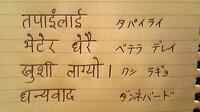 तपाईंलाई タパイライ
भेटेर धेरै ベテラ デレイ
खुशी लाग्यो । クシ ラギョ
धन्यवाद ダンネバード